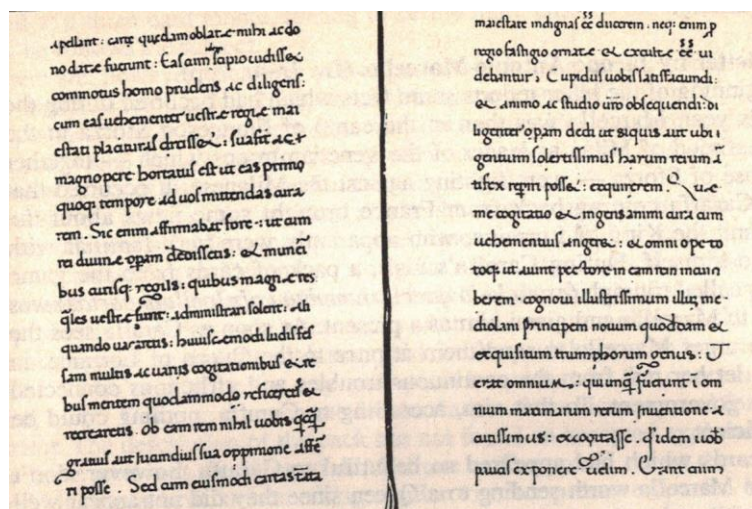 apellant: carte quedam oblate mihi ac do
no date fuerunt: Eas cum scipio uidisset
commotus homo prudens ac diligens:
cum eas uehementer uestre regie mai
estati placituras dixisset: suasit ac
magno pere hortatus est ut eas primo
quoq; tempore ad uos mittendas cura
rem. Sic enim affirmabat fore: ut cum
rei diuine opam dedissetis: et
bus regijs: quibus magne res
uestre sunt: administrari solent: ali
quando uacaretis: huiuscemodi lusibus fes
sam multis ac uarijs cogitationibus et
bus mentem quodammodo refficeretis et
recrearetis. ob eam rem nihil uobis
gratius aut iucundius sua oppinione
ri posse. Sed cum eiusmodi cartas tāta
maiestate indignas eē ducerem. neq; enim
regio fastigio ornate et exculte eē ui
debantur. Cupidus uobis satisfaciundi:
et animo ac studio obsequendi: di
ligenter opam dedi ut siquis aut ubi
genium solertissimus harum rerum
tifex posset: requirerem.
me cogitatio et ingens animi cura cum
uehementius angeret: et omni ope to
toq; ut aiunt pectore in eam rem incum
berem. cognoui illustrissimum illum me
diolani principem nouum quoddam et
exquisitum triumphorum genus:
erat omnium: quinque fuerunt i om
nium maximarum rerum inuentione
: excogitasse. Quidem uobis
paucis exponere uelim. Erant cum